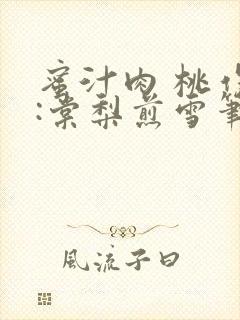 蜜汁肉桃作
:棠梨煎雪筆
風流子曰